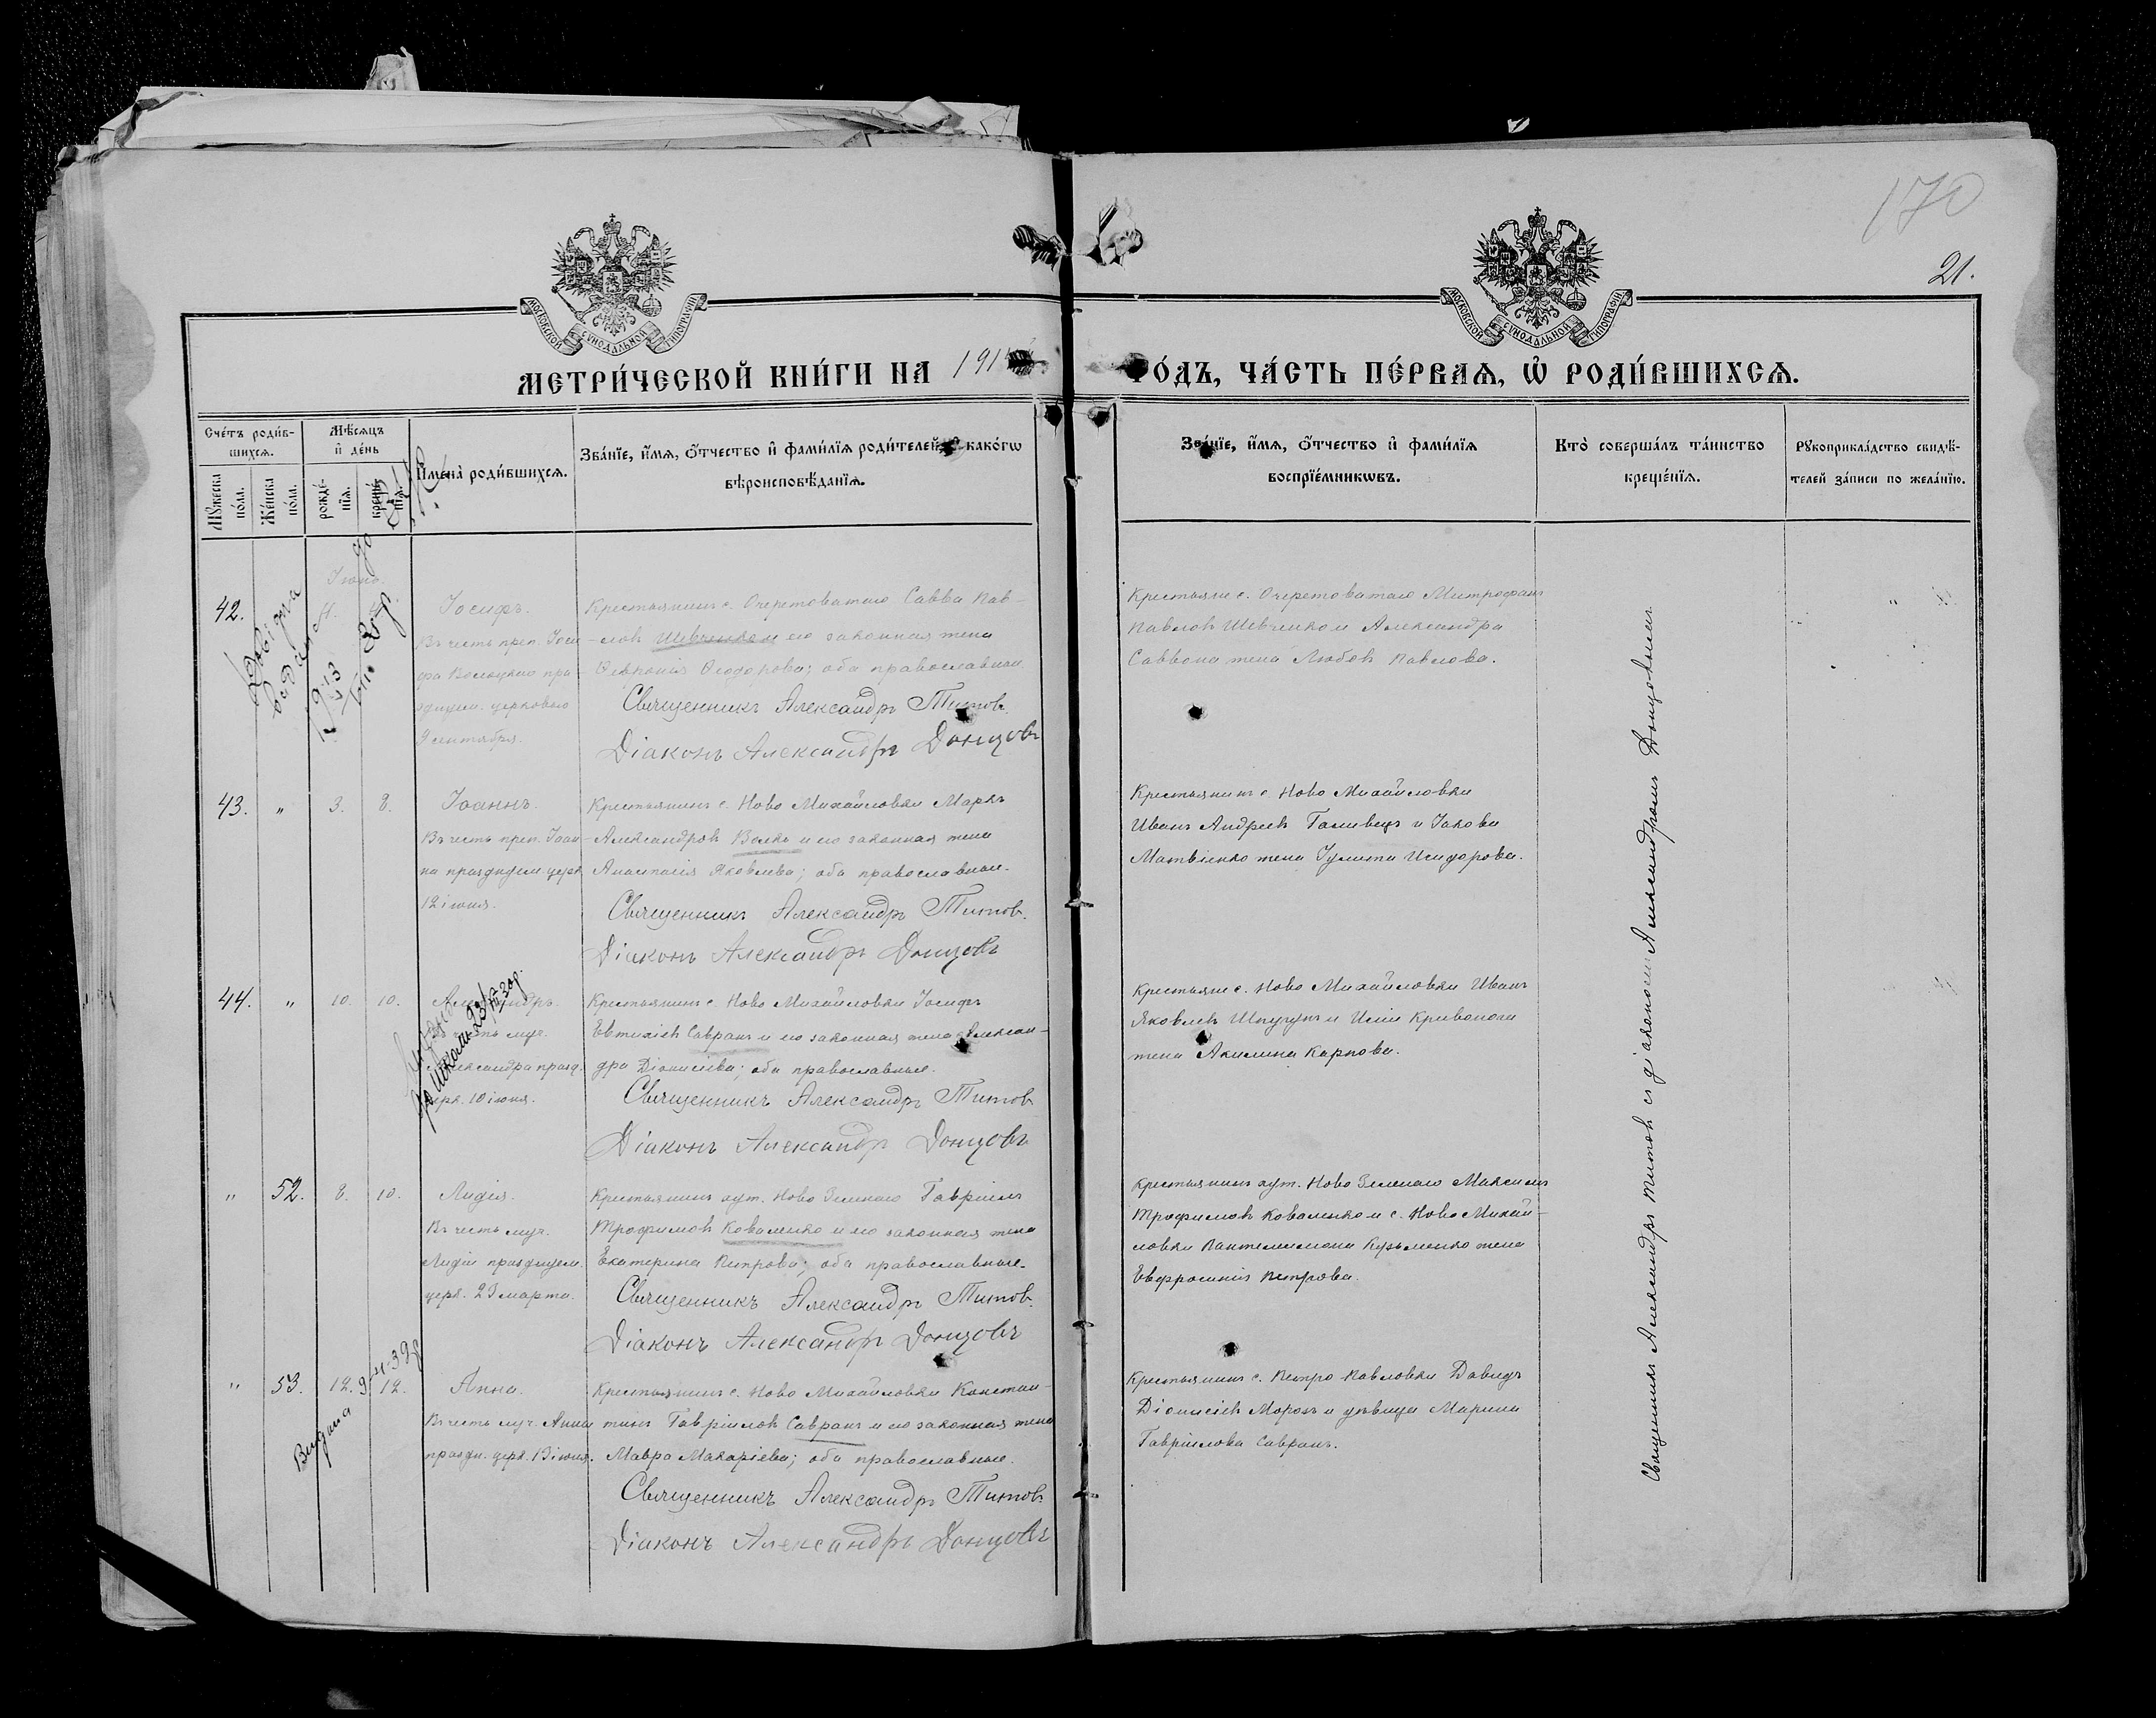 170
21.
МОСКОВСКОЙ СѴНОДАЛЬНОЙ ТИПОГРАФІИ
МОСКОВСКОЙ СѴНОДАЛЬНОЙ ТИПОГРАФІИ
МЕТРИ́ЧЕСКОЙ КНИ́ГИ НА 191
ГО́ДЪ, ЧА́СТЬ ПЕ́РВАѦ, Ѡ҆ РОДИ́ВШИХСѦ.
Сче́тъ роди́в-
шихсѧ.
Мꙋ́жеска по́ла.
Же́нска по́ла.
Мѣ́сѧцъ
и҆ де́нь
рожде́-
нїѧ.
креще́-
нїѧ.
И҆мена̀ роди́вшихсѧ.
Зва́нїе, и҆́мѧ, ѻ҆́тчество и҆ фами́лїѧ роди́телей, и҆ како́гѡ
вѣроисповѣ́данїѧ.
Зва́нїе, и҆́мѧ, ѻ҆́тчество и҆ фами́лїѧ
воспрїе́мникѡвъ.
Кто̀ соверша́лъ та́инство
креще́нїѧ.
Рꙋкоприкла́дство свидѣ́-
телей за́писи по жела́нїю.
Іюнь.
42.
Іосифъ.
Въ честь преп. Іоси-
фа Волоцкаго пра-
зднуем. церковью
9 сентября.
Крестьянинъ с. Очеретоватаго Савва Пав-
ловъ Шевченко и его законная жена
Ѳевронія Ѳеодорова; оба православные.
Священникъ Александръ Титовъ.
Діаконъ Александръ Донцовъ
Крестьяне с. Очеретоватаго Митрофанъ
Павловъ Шевченко и Александра
Саввона жена Любовь Павлова.
43. " 3. 8.
Іоаннъ.
Въ честь преп. Іоан-
на празднуем. церк.
12 іюня.
Крестьянинъ с. Ново Михайловки Маркъ
Александровъ Волкъ и его законная жена
Анастасія Яковлева; оба православные.
Священникъ Александръ Титовъ.
Діаконъ Александръ Донцовъ
Крестьянинъ с. Ново Михайловки
Иванъ Андреевъ и Іакова
Матвіенко жена Іулитта Исидорова.
44. " 10. 10.
Александръ.
Въ честь муч.
Александра празд.
церк. 10 іюня.
Крестьянинъ с. Ново Михайловки Іосифъ
Евтихіевъ Савранъ и его законная жена Алексан-
дра Діонисіева; оба православные.
Священникъ Александръ Титовъ
Діаконъ Александръ Донцовъ
Крестьяне с. Ново Михайловки Иванъ
Яковлевъ и Исіи Кривоноса
жена Акилина Карпова.
" 52. 8. 10.
Лидія.
Въ честь муч.
Лидіи празднуем.
церк. 23 марта.
Крестьянинъ хут. Ново Зеленаго Гавріилъ
Трофимовъ Коваленко и его законная жена
Екатерина Петрова; оба православные.
Священникъ Александръ Титовъ.
Діаконъ Александръ Донцовъ
Крестьянинъ хут. Ново Зеленаго Максимъ
Трофимовъ Коваленко и с. Ново Михай-
ловки Пантелеимона Кузьменко жена
Евфросинія Петрова.
" 53. 12. 12.
Анна.
Въ честь муч. Анны
праздн. церк. 13 іюня.
Крестьянинъ с. Ново Михайловки Констан-
тинъ Гавріиловъ Савранъ и его законная жена
Мавра Макаріева; оба православные.
Священникъ Александръ Титовъ
Діаконъ Александръ Донцовъ
Крестьянинъ с. Петро-Павловки Давидъ
Діонисіевъ Морозъ и дѣвица Марина
Гавріилова Савранъ.
Видана
Священникъ Александръ Титовъ съ діакономъ Александромъ Донцовымъ